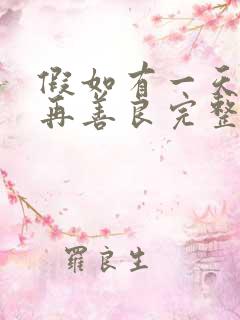 假如有一天
再善良完整
羅良生